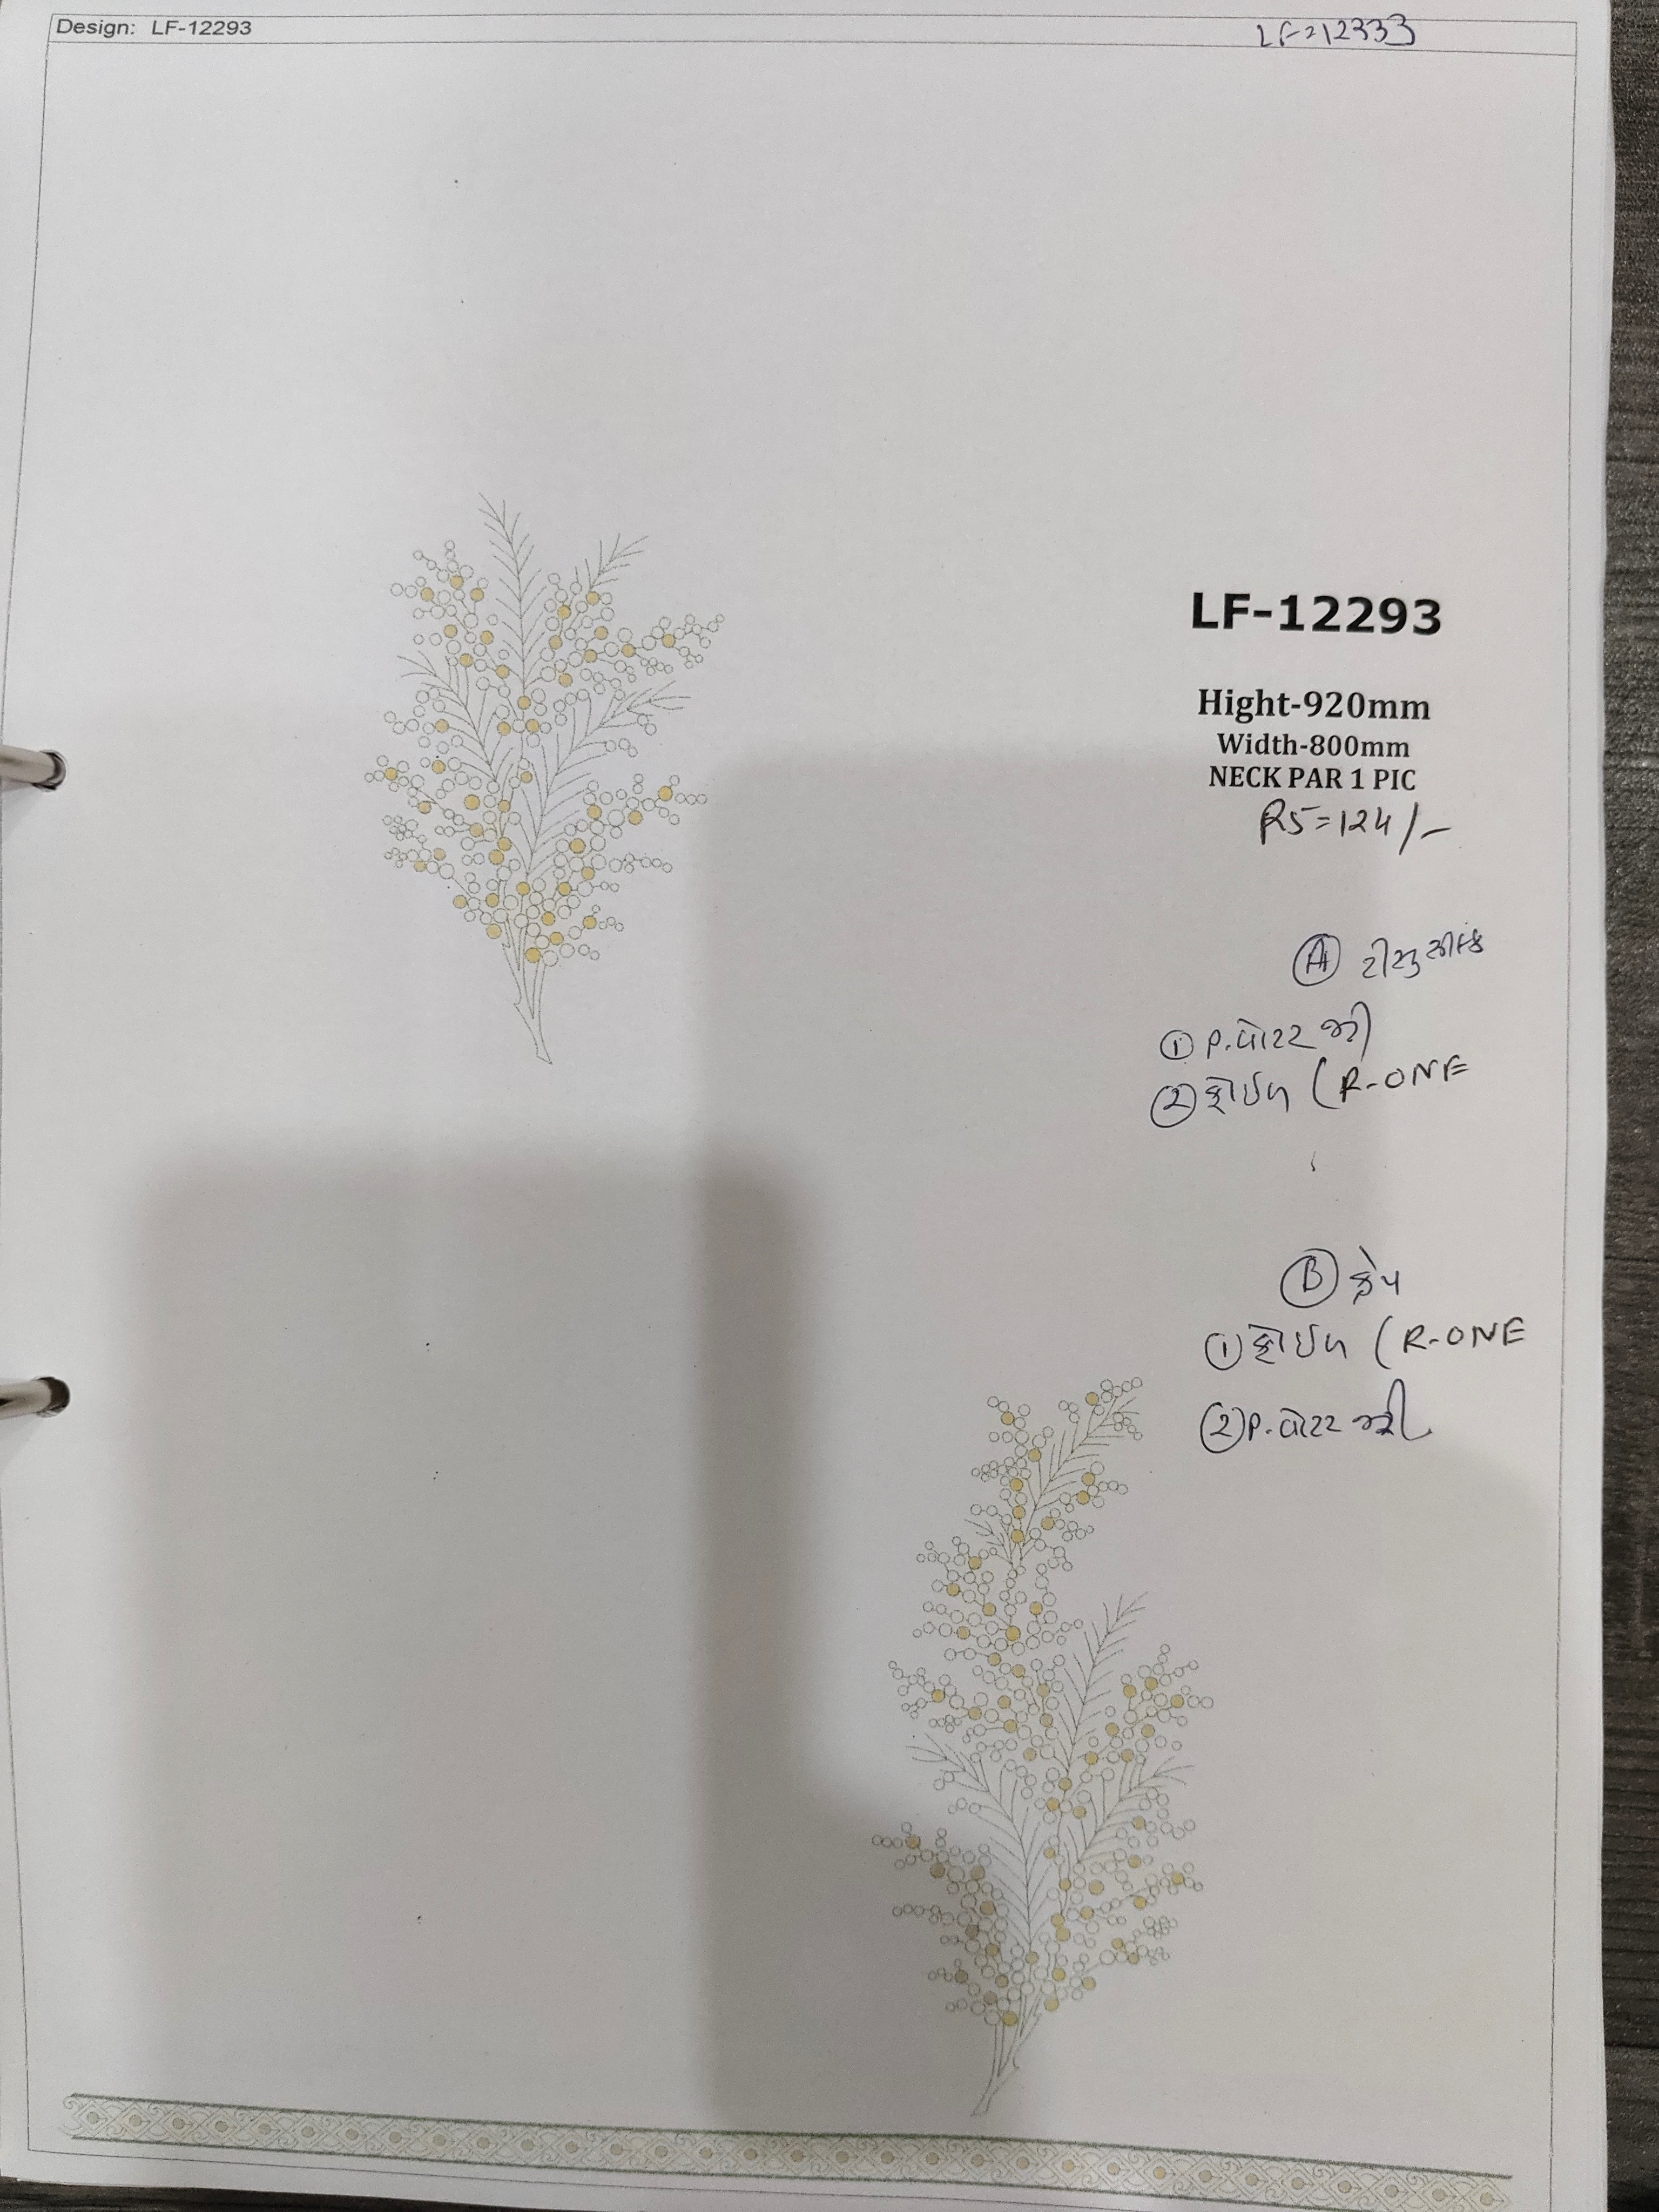 Design: LF-12293
LF=12333
LF-12293
Hight-920mm
Width-800mm
NECK PAR 1 PIC
RS=124/-
A ટીસ્યુ
① P.વોટર જરી
② ફોઈલ (R-ONE
B ક્રેપ
① ફોઈલ (R-ONE
② P.વોટર જરી